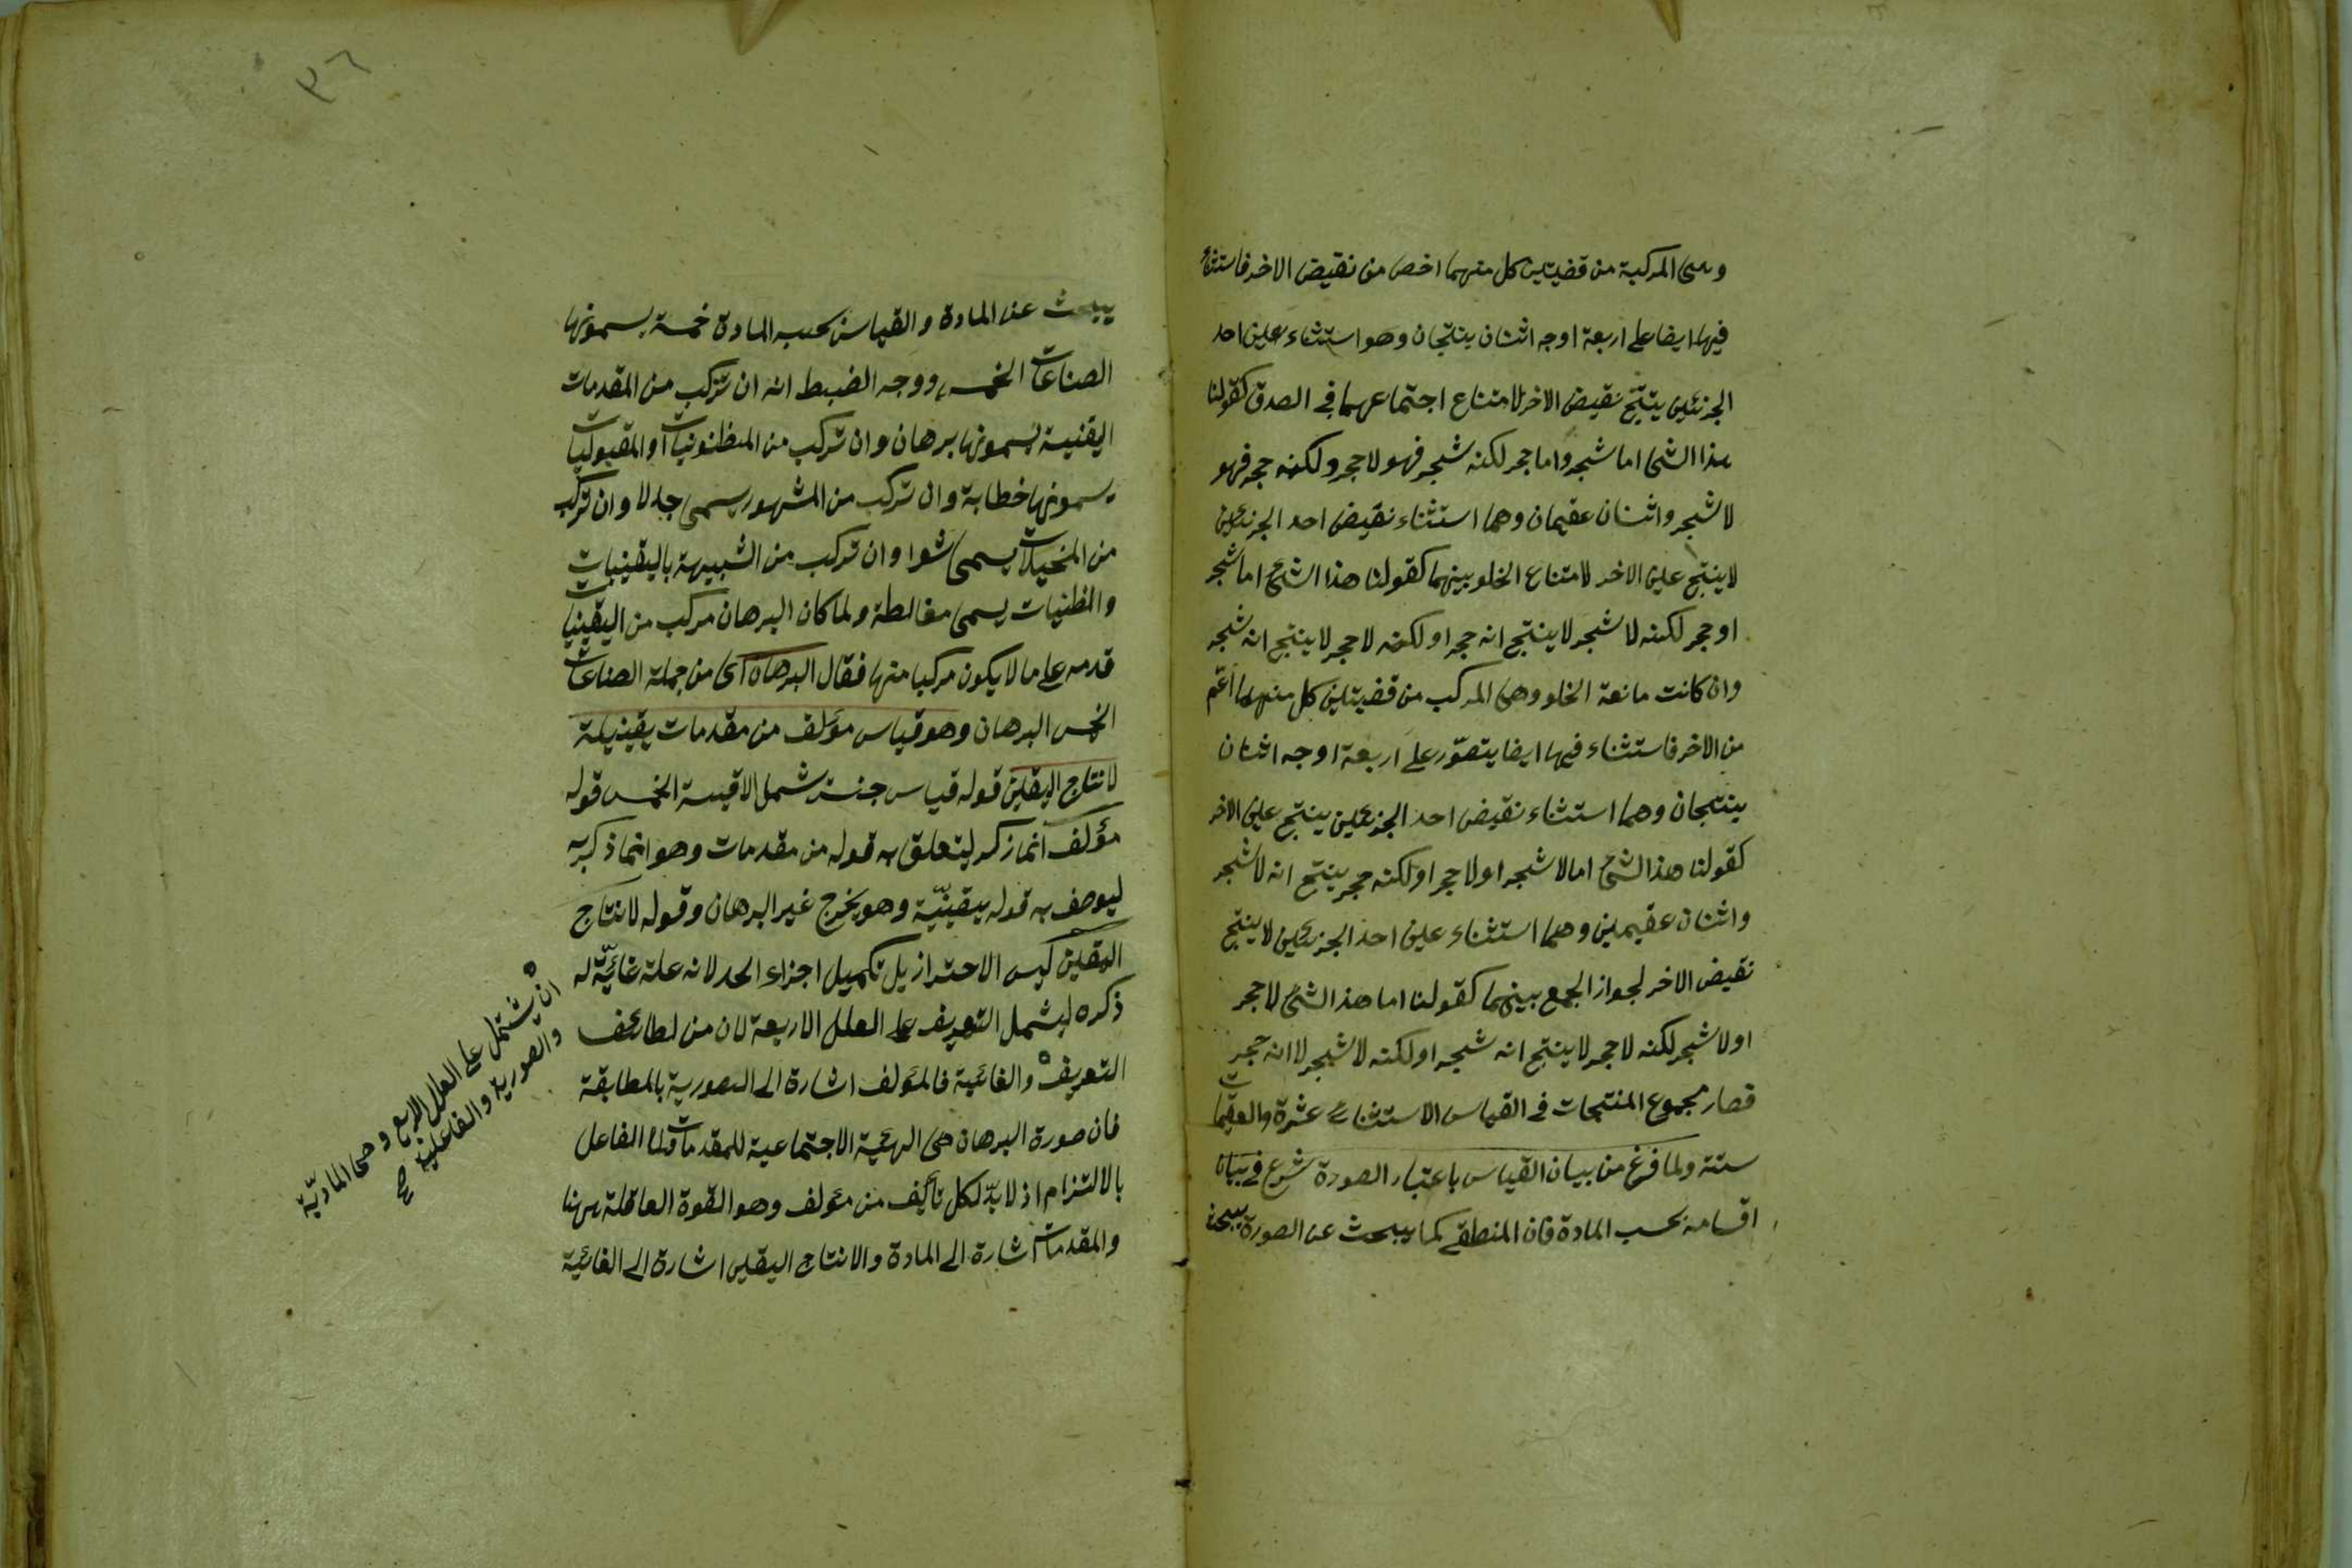 وهى المركبة من قضيتين كل منهما اخص من نقيض الاخر فاستثناء
فيها ايضا على اربعة اوجه اثنان ينتجان وهو استثناء عين احد
الجزئين ينتج نقيض الاخر لامتناع اجتماعهما فى الصدق كقولنا
هذا الشئ اما شجر واما حجر لكنه شجر فهو لا حجر ولكنه حجر فهو
لا شجر واثنان عقيمان وهما استثناء نقيض احد الجزئين
لا ينتج عين الاخر لامتناع الخلو بينهما كقولنا هذا الشئ اما شجر
او حجر لكنه لا شجر لا ينتج انه حجر او لكنه لا حجر لا ينتج انه شجر
وان كانت مانعة الخلو وهى المركب من قضيتين كل منهما اعّم
من الاخر فاستثناء فيها ايضا يتصوّر على اربعة اوجه اثنان
ينتجان وهما استثناء نقيض احد الجزئين ينتج عين الاخر
كقولنا هذا الشئ اما لا شجر او لا حجر او لكنه حجر ينتج انه لا شجر
واثنان عقيمين وهما استثناء عين احد الجزئين لا ينتج
نقيض الاخر لجواز الجمع بينهما كقولنا اما هذ الشئ لا حجر
او لا شجر لكنه لا حجر لا ينتج انه شجر او لكنه لا شجر لا انه حجر
فصار مجموع المنتجات فى القياس الاستثنائى عشرة والعقيمات
ستة ولما فرغ من بيان القياس باعتبار الصورة شرع فى بيان
اقسامه بحسب المادة فان المنطقى كما يبحث عن الصورة يبحث
٣٦
يبحث عن المادة والقياس بحسب المادة خمسة يسمونها
الصناعات الخمس ووجه الضبط انه ان تركب من المقدمات
اليقنية يسمونها برهان وان تركب من المظنونيات او المقبوليات
يسمونها خطابة وان تركب من المشهور يسمى جدلا وان تركب
من المخيلات يسمى شعرا وان تركب من الشبيهة باليقينيات
والظنيات يسمى مغالطة ولما كان البرهان مركب من اليقينيات
قدمه على ما لا يكون مركبا منها فقال البرهان اى من جملة الصناعات
الخمس البرهان وهو قياس مؤلف من مقدمات يقينية
لانتاج اليقين قوله قياس جنس شمل الاقيسة الخمس قوله
مؤلف انما ذكر ليتعلق به قوله من مقدمات وهو انما ذكر به
ليوصف به قوله يقينيّة وهو يخرج غير البرهان وقوله لانتاج
اليقين ليس الاحتراز بل تكميل اجزاء الحد لانه علة غائيّة له
ذكره ليشمل التعريف على العلل الاربعة لان من لطائف
التعريف والغائية فالمؤلف اشارة الى الصورية بالمطابقة
فان صورة البرهان هى الهيئة الاجتماعية للمقدمات والى الفاعل
بالالتزام اذ لا بدّ لكل تأليف من مؤلف وهو القوة العاقلة ههنا
والمقدمات اشارة الى المادة والانتاج اليقين اشارة الى الغائية
ان يشتمل على العلل الاربع وهى الماديّة
والصورية والفاعلية صح